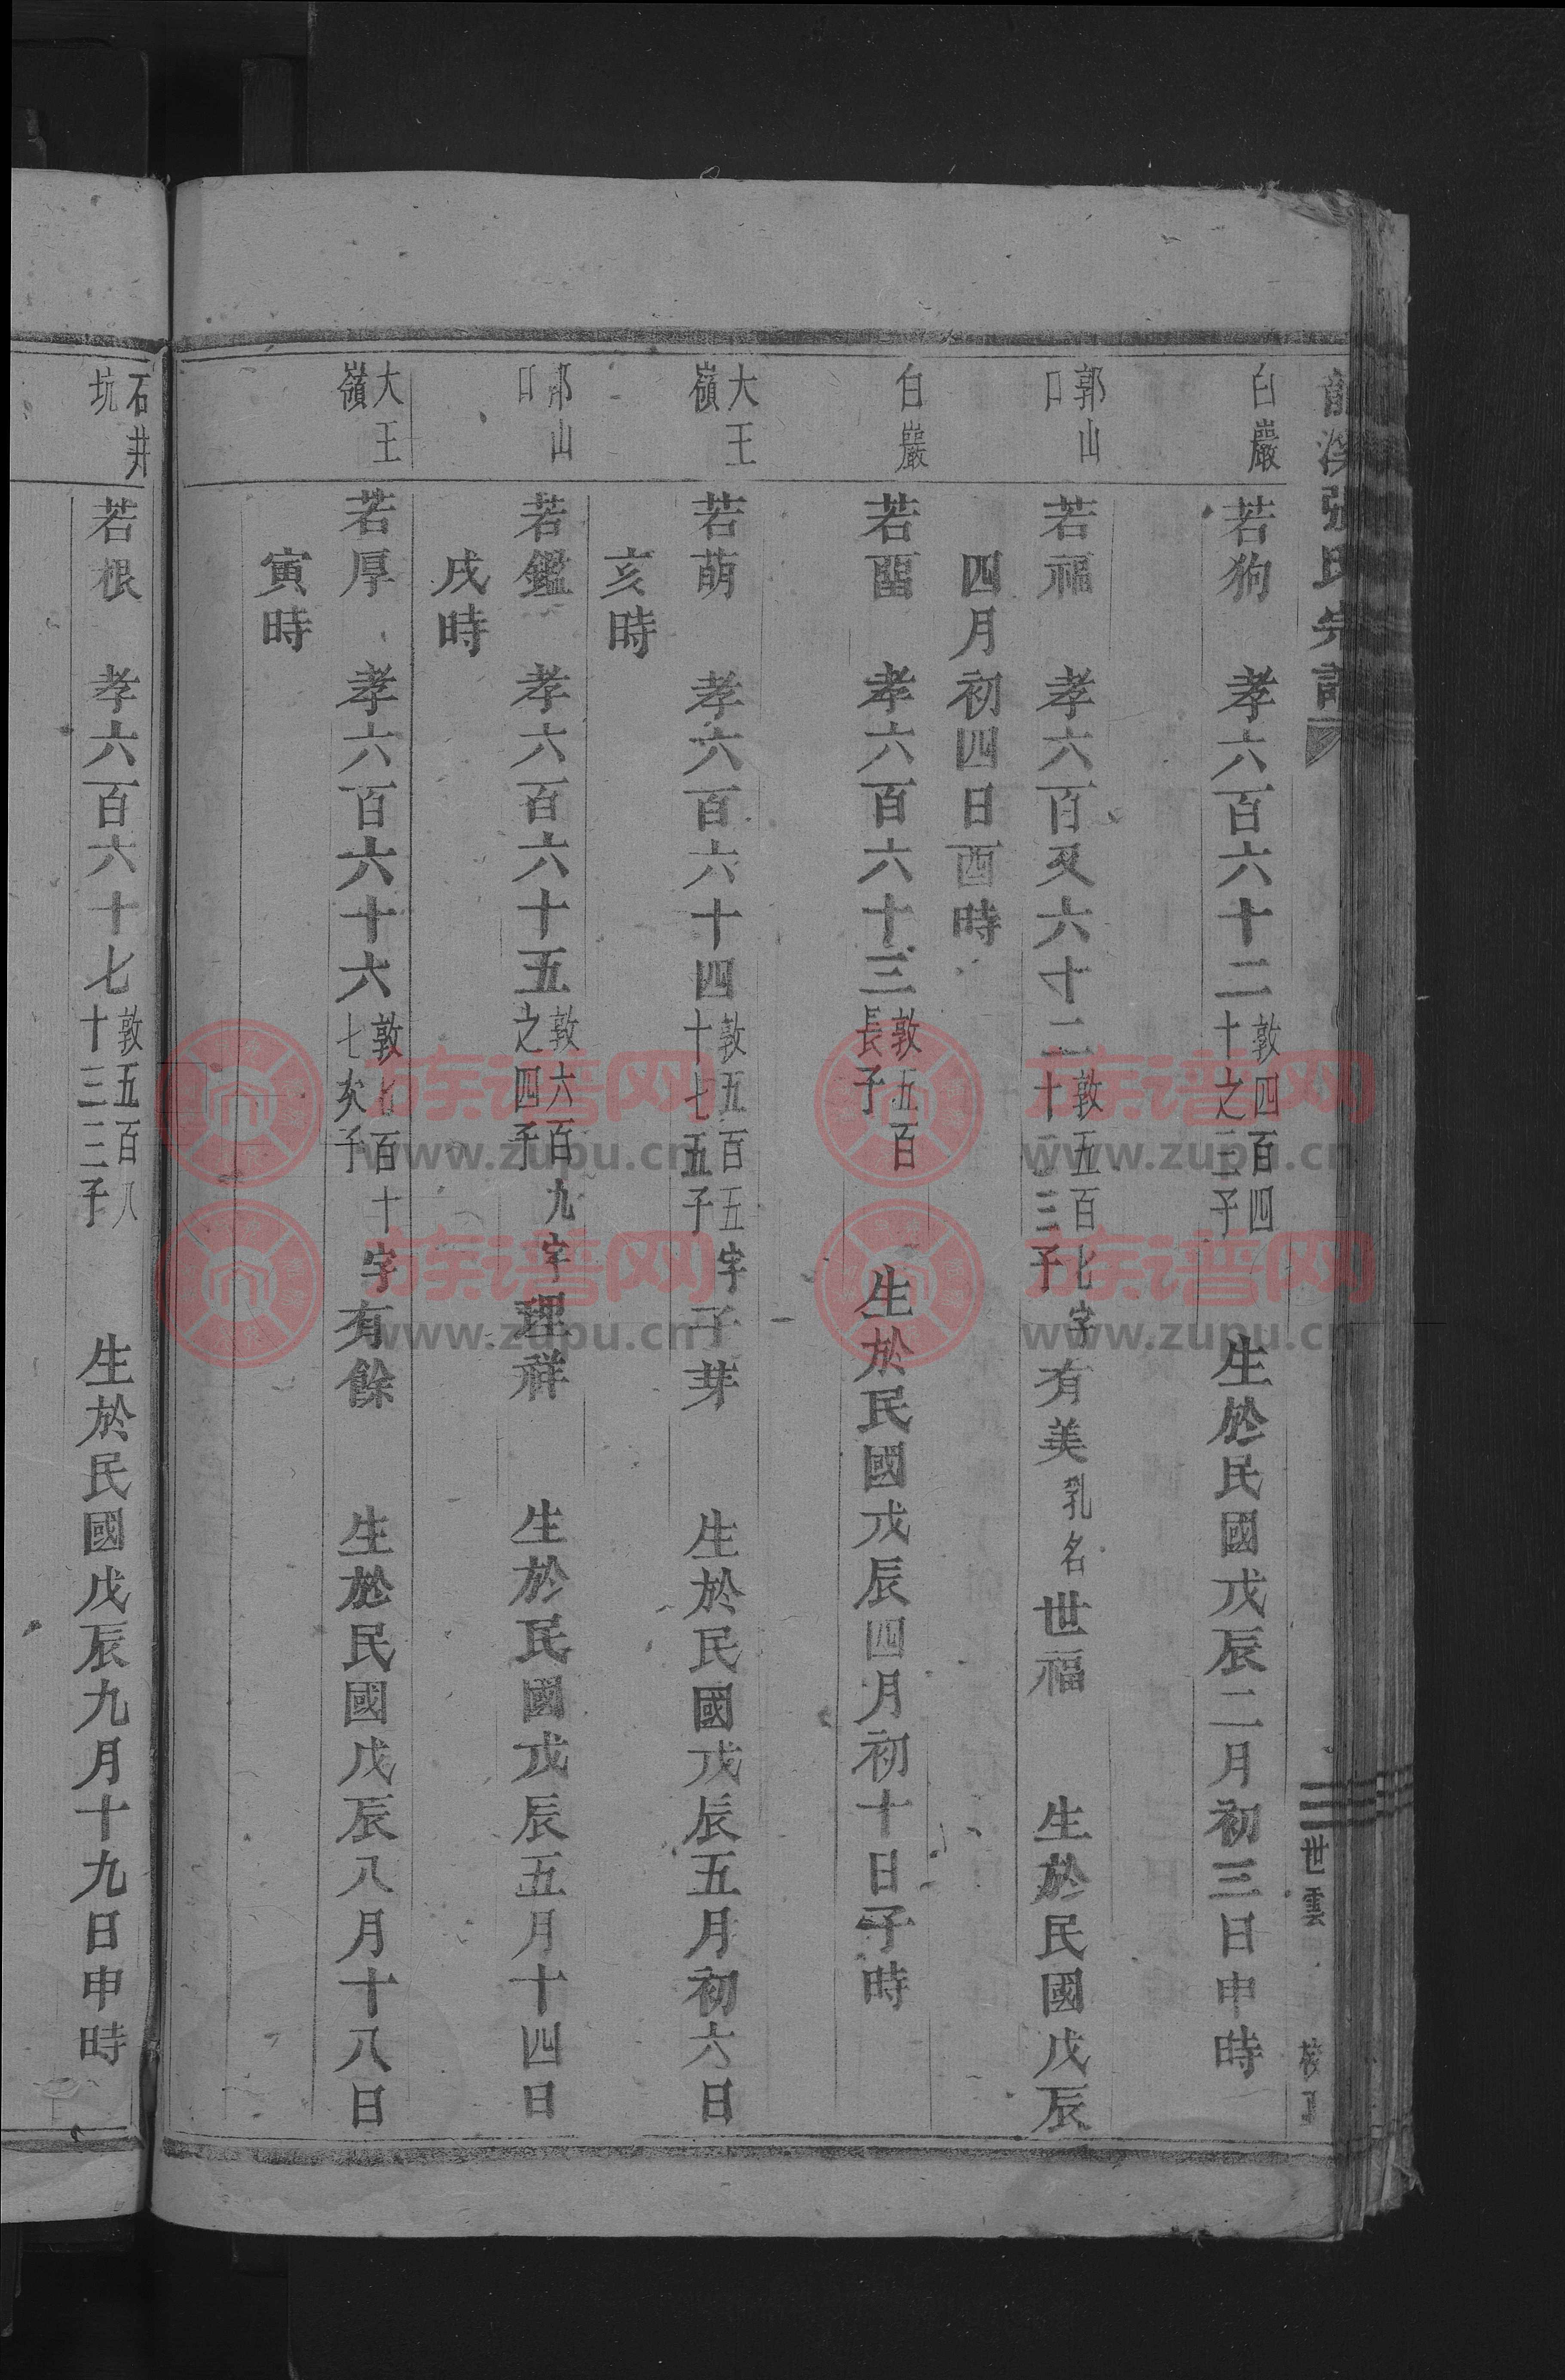 龍溪張氏宗譜
三世雲 校丁
白巖
若狗 孝六百六十二 敦四百四十之三子 生於民國戊辰二月初三日申時
郭山口
若福 孝六百又六十二 敦五百七十二三子 字有美 乳名世福 生於民國戊辰
四月初四日酉時
白巖
若畱 孝六百六十三 敦五百長子 生於民國戊辰四月初十日子時
大王嶺
若萌 孝六百六十四 敦五百五十七五子 字子芽 生於民國戊辰五月初六日
亥時
郭山口
若鑑 孝六百六十五 敦六百九之四子 字理祥 生於民國戊辰五月十四日
戌時
大王嶺
若厚 孝六百六十六 敦七百十七次子 字有餘 生於民國戊辰八月十八日
寅時
石井坑
若根 孝六百六十七 敦五百八十三三子 生於民國戊辰九月十九日申時
族谱网
www.zupu.cn
族谱网
www.zupu.cn
族谱网
www.zupu.cn
族谱网
www.zupu.cn